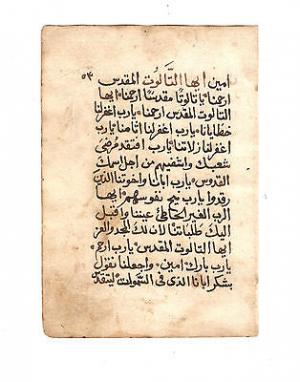 امين ايها التَّالوُت المقدس ٥٣
ارحمنا يا تالوتًا مقدسًا ارحمنا ايها
التالوت المقدس ارحمنا يارب اغفرلنا
خطايانا يارب اغفرلنا اثامنا يارب
اغفرلنا زلاتنا يارب افتقد مرضى
شعبك واشفيهم من اجل اسمك
القدوس يارب ابائنا واخوتنا الذين
رقدوا يارب نيح نفوسهم ايها
الرب الغير الخاطئ عيننا واقبل
اليك طلباتنا لان لك المجد والعز
ايها التالوت المقدس يارب ارحم
يارب بارك امين واجعلنا نقول
بشكر ابانا الذي في السموات ليتقدس